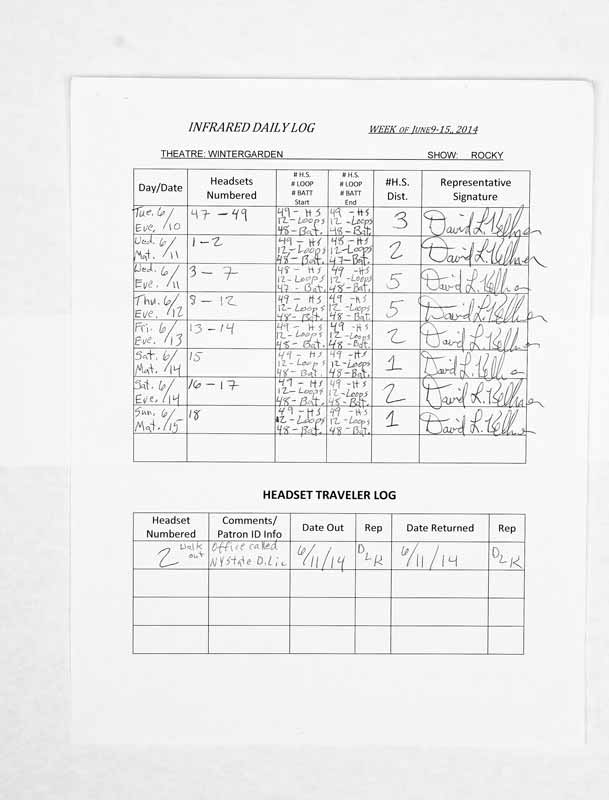 INFRARED DAILY LOG WEEK OF JUNE9-15, 2014
THEATRE: WINTERGARDEN SHOW: ROCKY
Day/Date Headsets Numbered # H.S. # LOOP # BATT Start # H.S. # LOOP # BATT End #H.S. Dist. Representative Signature
Tue. 6/10 Eve. 47-49 49-HS 12-Loops 48-Bat. 49-HS 12-Loops 48-Bat. 3 David L. Kellner
Wed. 6/11 Mat. 1-2 49-HS 12-Loops 48-Bat. 48-HS 12-Loops 47-Bat. 2 David L. Kellner
Wed. 6/11 Eve. 3-7 48-HS 12-Loops 47-Bat. 49-HS 12-Loops 48-Bat. 5 David L. Kellner
Thu. 6/12 Eve. 8-12 49-HS 12-Loops 48-Bat. 49-HS 12-Loops 48-Bat. 5 David L. Kellner
Fri. 6/13 Eve. 13-14 49-HS 12-Loops 48-Bat. 49-HS 12-Loops 48-Bat. 2 David L. Kellner
Sat. 6/14 Mat. 15 49-HS 12-Loops 48-Bat. 49-HS 12-Loops 48-Bat. 1 David L. Kellner
Sat. 6/14 Eve. 16-17 49-HS 12-Loops 48-Bat. 49-HS 12-Loops 48-Bat. 2 David L. Kellner
Sun. 6/15 Mat. 18 49-HS 12-Loops 48-Bat. 49-HS 12-Loops 48-Bat. 1 David L. Kellner
HEADSET TRAVELER LOG
Headset Numbered Comments/ Patron ID Info Date Out Rep Date Returned Rep
2 walk out Office called NYState D.Lic 6/11/14 DLK 6/11/14 DLK